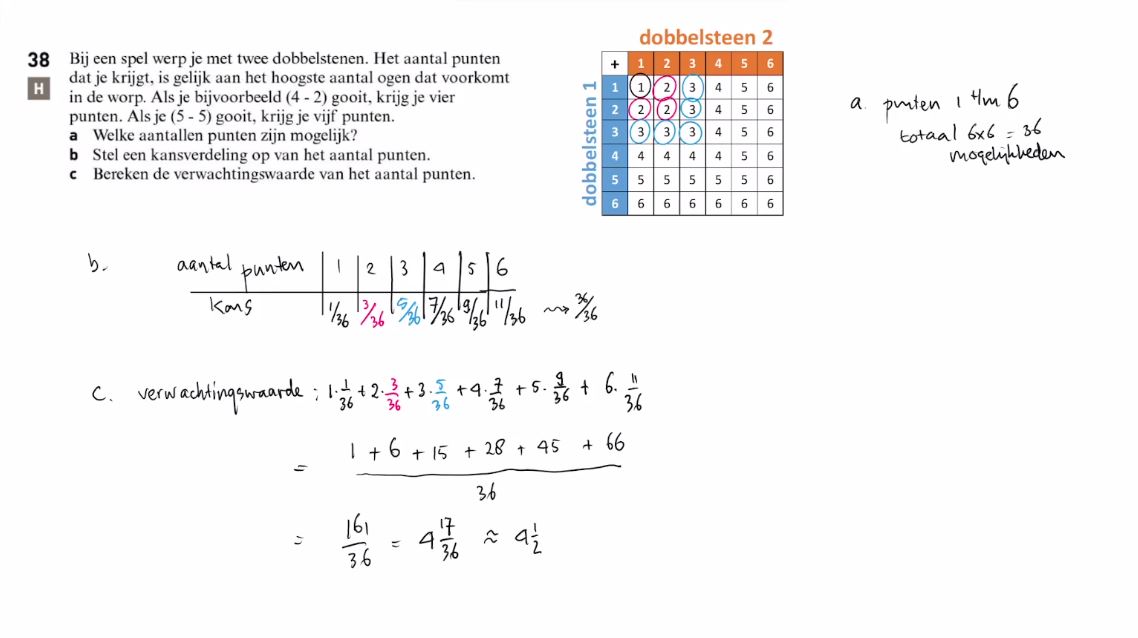 38 Bij een spel werp je met twee dobbelstenen. Het aantal punten
dat je krijgt, is gelijk aan het hoogste aantal ogen dat voorkomt
H
in de worp. Als je bijvoorbeeld (4 - 2) gooit, krijg je vier
punten. Als je (5 - 5) gooit, krijg je vijf punten.
a Welke aantallen punten zijn mogelijk?
b Stel een kansverdeling op van het aantal punten.
c Bereken de verwachtingswaarde van het aantal punten.
dobbelsteen 2
dobbelsteen 1
+ 1 2 3 4 5 6
1 1 2 3 4 5 6
2 2 2 3 4 5 6
3 3 3 3 4 5 6
4 4 4 4 4 5 6
5 5 5 5 5 5 6
6 6 6 6 6 6 6
a. punten 1 t/m 6
totaal 6x6 = 36
mogelijkheden
b. aantal punten 1 2 3 4 5 6
kans 1/36 3/36 5/36 7/36 9/36 11/36 ⇝ 36/36
c. verwachtingswaarde : 1·1/36 + 2·3/36 + 3·5/36 + 4·7/36 + 5·9/36 + 6·11/36
= 1 + 6 + 15 + 28 + 45 + 66
36
= 161/36 = 4 17/36 ≈ 4 1/2